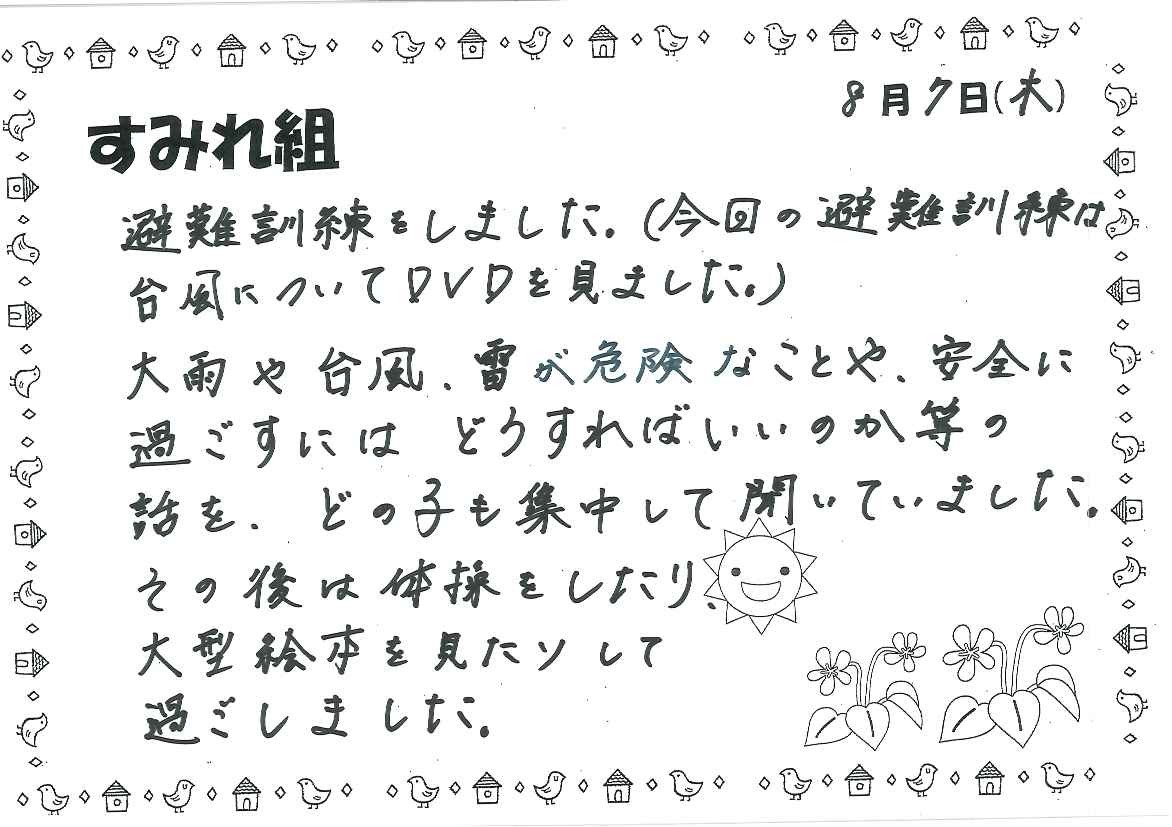 8月7日(木)
すみれ組
避難訓練をしました。(今回の避難訓練は
台風についてDVDを見ました。)
大雨や台風、雷が危険なことや、安全に
過ごすには どうすればいいのか等の
話を、どの子も集中して聞いていました。
その後は体操をしたり、
大型絵本を見たりして
過ごしました。